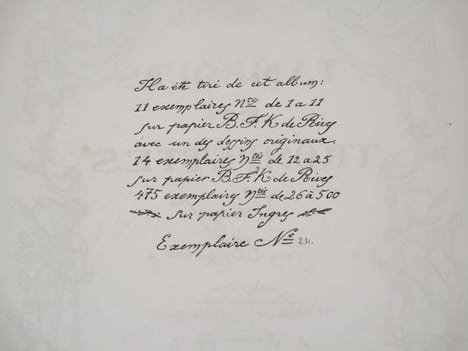 Il a été tiré de cet album:
11 exemplaires Nos de 1 à 11
sur papier B.F.K de Rives
avec un des dessins originaux.
14 exemplaires Nos de 12 à 25
sur papier B.F.K de Rives
475 exemplaires Nos de 26 à 500
sur papier Ingres
Exemplaire No